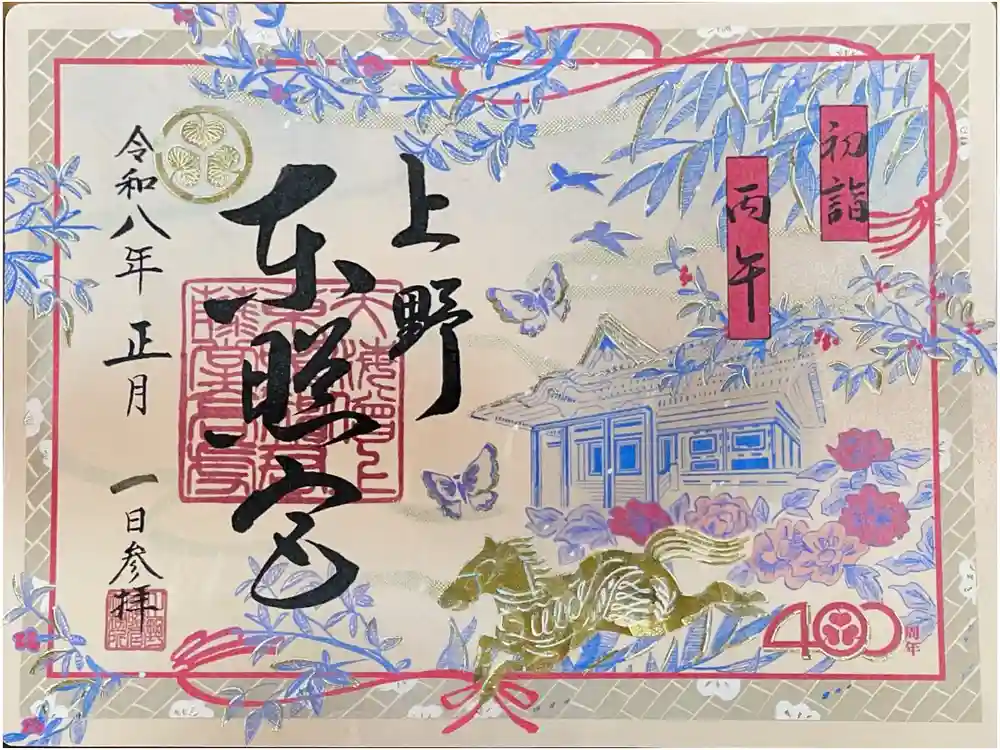 初詣
丙午
上野
東照宮
令和八年 正月 一日参拝
400周年